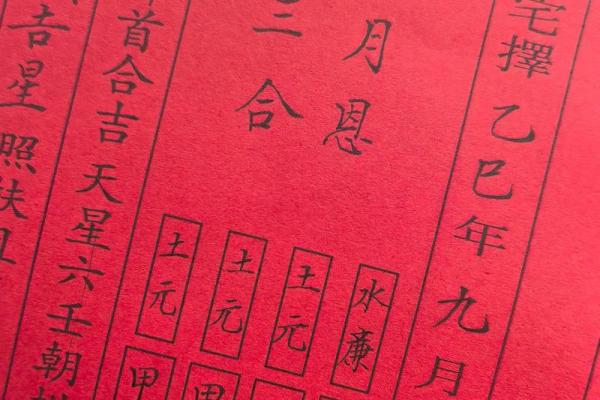 宅擇乙巳年九月
月恩
三合
水廉
土元
土元
土元
甲
甲
首合吉天星六壬朝
吉星照扶